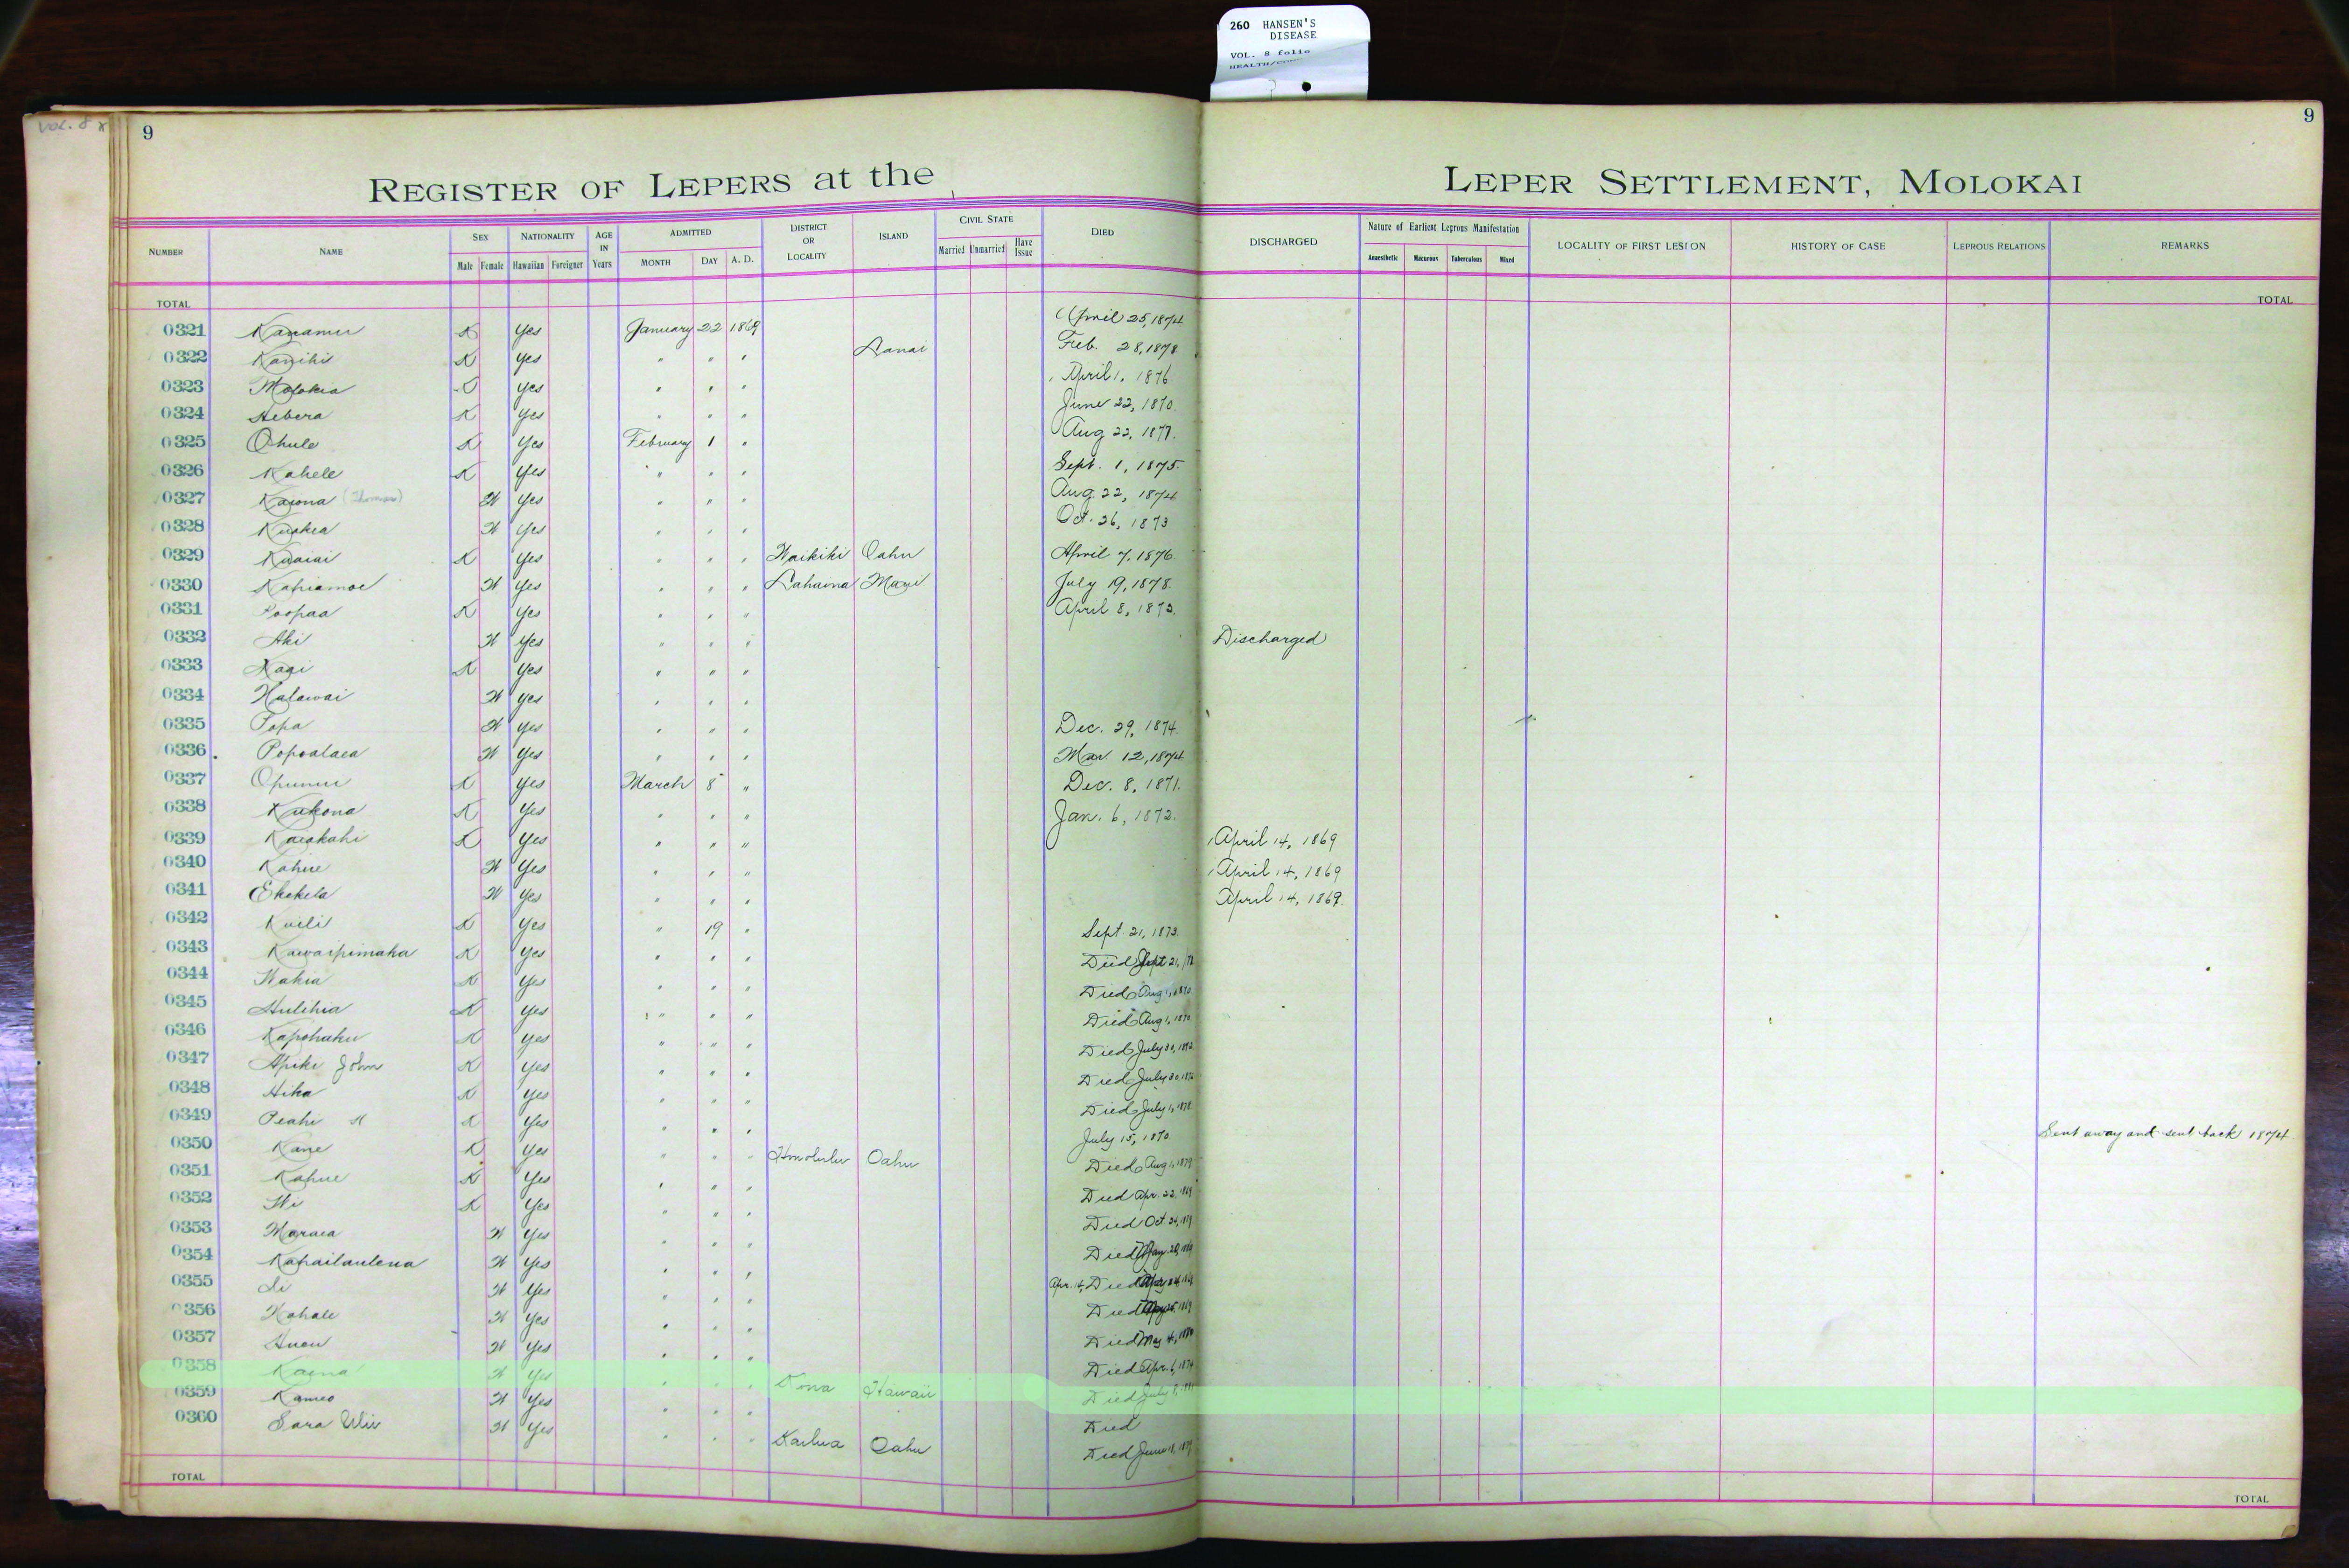 260 HANSEN'S
DISEASE
VOL. 8 folio
VOL. 8
9
9
REGISTER OF LEPERS at the LEPER SETTLEMENT, MOLOKAI
NUMBER NAME SEX Male Female NATIONALITY Hawaiian Foreigner AGE IN Years ADMITTED MONTH DAY A. D. DISTRICT OR LOCALITY ISLAND CIVIL STATE Married Unmarried Have Issue DIED DISCHARGED Nature of Earliest Leprous Manifestation Anaesthetic Macurous Tuberculous Mixed LOCALITY OF FIRST LESION HISTORY OF CASE LEPROUS RELATIONS REMARKS
TOTAL TOTAL
0321 Kanamu K Yes January 22 1869 April 25, 1874
0322 Kanihi K Yes " " " Lanai Feb. 28, 1878
0323 Molokia Yes " " " April 1, 1876
0324 Hebera K Yes " " " June 22, 1870
0325 Ohule K Yes February 1 " Aug 22, 1877.
0326 Kahele K Yes " " " Sept. 1, 1875.
0327 Kaiona (Thomas) W Yes " " " Aug. 22, 1874
0328 W Yes " " " Oct. 26, 1873
0329 Kuaiai K Yes " " " Waikiki Oahu April 7, 1876.
0330 Kahiamoe W Yes " " " Lahaina Maui July 19, 1878.
0331 Poopaa K Yes " " " April 8, 1873.
0332 Aki W Yes " " " Discharged
0333 K Yes " " "
0334 Halawai W Yes " " "
0335 Popa W Yes " " " Dec. 29, 1874.
0336 Popoalaea W Yes " " " Mar. 12, 1874
0337 Opunui K Yes March 8 " Dec. 8, 1871.
0338 Kukona K Yes " " " Jan. 6, 1872.
0339 Kaiakahi K Yes " " " April 14, 1869
0340 Kahue W Yes " " " April 14, 1869
0341 Ekekela W Yes " " " April 14, 1869.
0342 Kuili K Yes " 19 " Sept. 21, 1873.
0343 Kawaipimaka K Yes " " " Died Sept 21,
0344 Wahia K Yes " " " Died Aug 1, 1870
0345 Hulihia K Yes " " " Died Aug 1, 1870
0346 Kapohaku K Yes " " " Died July 30, 1872
0347 Apiki John K Yes " " " Died July 30, 1872
0348 Hika K Yes " " " Died July 1, 1878
0349 Peahi K Yes " " " July 15, 1870. Sent away and sent back 1874
0350 Kane K Yes " " " Honolulu Oahu Died Aug 1, 1879
0351 Kahue K Yes " " " Died Apr. 22, 1869
0352 K Yes " " " Died Oct. 24,
0353 Maraea W Yes " " " Died May 20, 1869
0354 Kahailaulena W Yes " " " Apr. 14, Died
0355 W Yes " " " Died
0356 Kahale W Yes " " " Died May 4,
0357 Aneu W Yes " " " Died Apr. 6, 1874
0358 Kaena W Yes " " " Kona Hawaii Died July 8,
0359 Kameo W Yes " " " Died
0360 Sara Uliu W Yes " " " Kailua Oahu Died June 18, 1879
TOTAL TOTAL